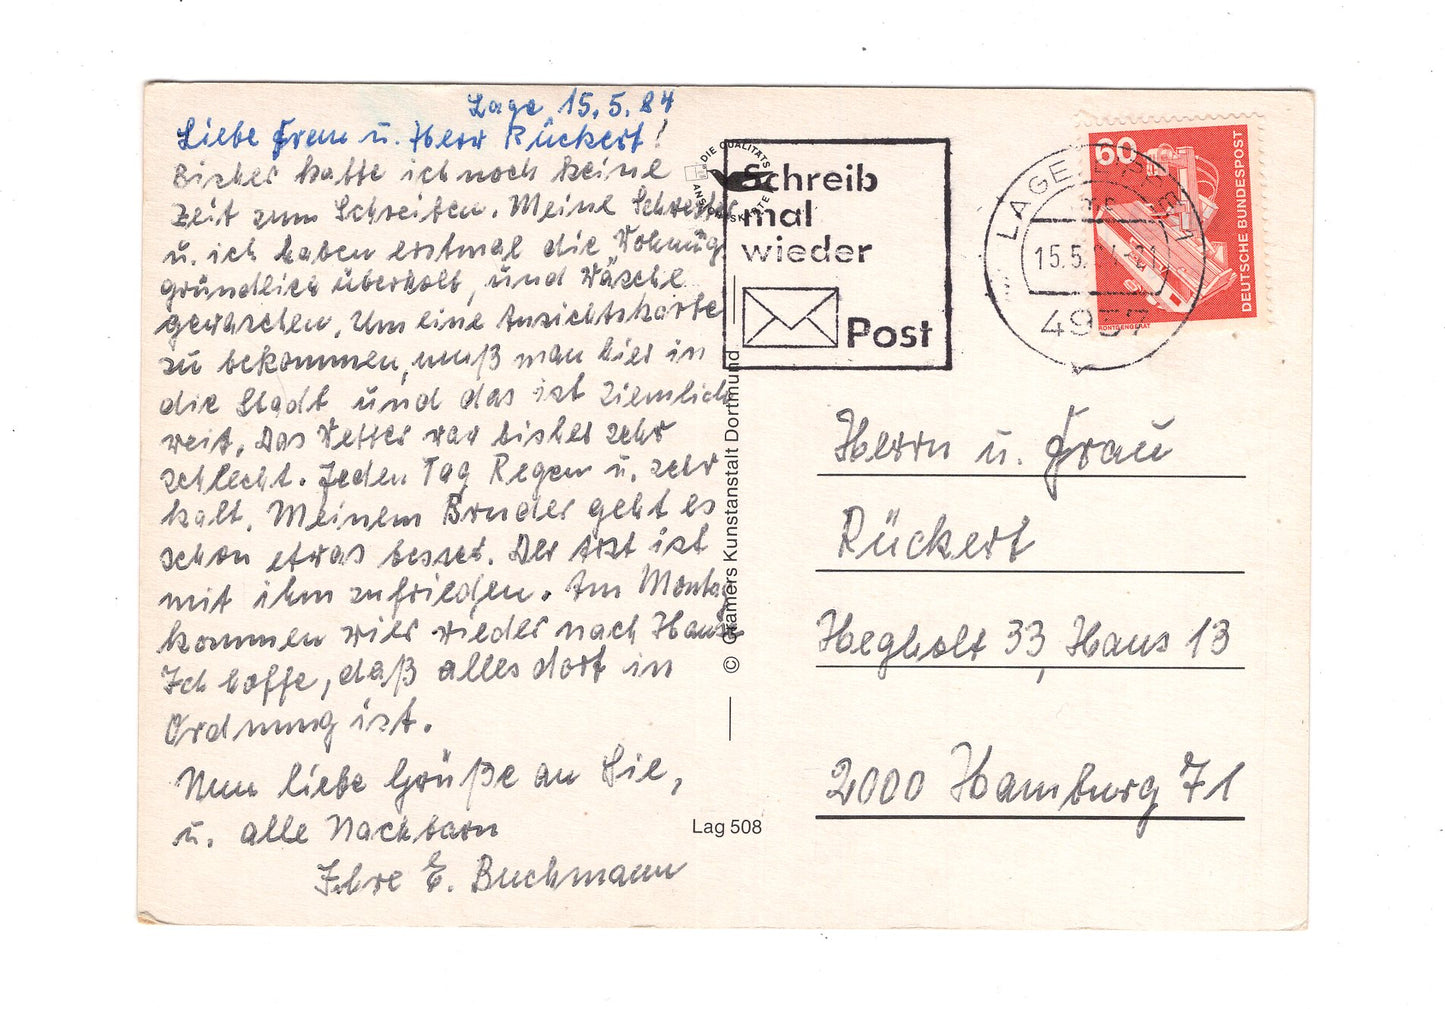 Lage 15.5.84
Liebe Frau u. Herr Rückert!
Bisher hatte ich noch keine
Zeit zum Schreiben. Meine Schwester
u. ich haben erstmal die Wohnung
gründlich überholt, und Wäsche
gewaschen. Um eine Ansichtskarte
zu bekommen, muß man hier in
die Stadt und das ist ziemlich
weit. Das Wetter war bisher sehr
schlecht. Jeden Tag Regen u. sehr
kalt. Meinem Bruder geht es
schon etwas besser. Der Arzt ist
mit ihm zufrieden. Am Montag
kommen wir wieder nach Hause
Ich hoffe, daß alles dort in
Ordnung ist.
Nun liebe Grüße an Sie,
u. alle Nachbarn
Ihre E. Buchmann
DIE QUALITÄTS
ANSICHTSKARTE
© Cramers Kunstanstalt Dortmund
Lag 508
Schreib
mal
wieder
Post
LAGE, LIPPE 1
15.5.84-21
4937
60
DEUTSCHE BUNDESPOST
RÖNTGENGERÄT
Herrn u. Frau
Rückert
Hegholt 33, Haus 13
2000 Hamburg 71